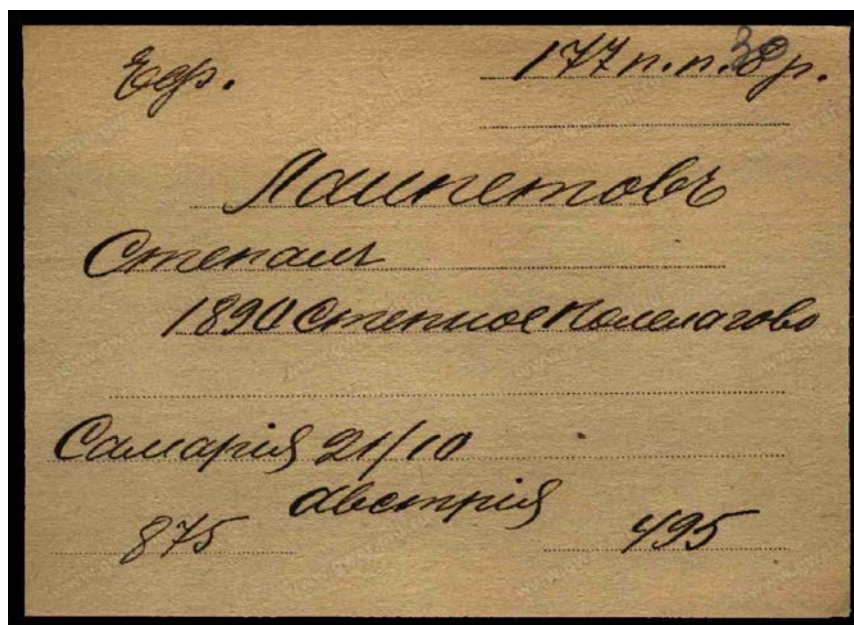 Ефр. 177 п.п. 8 р.
30
Лашпетовъ
Степанъ
1890 Степное
Самарія 21/10
Австрія
875 495